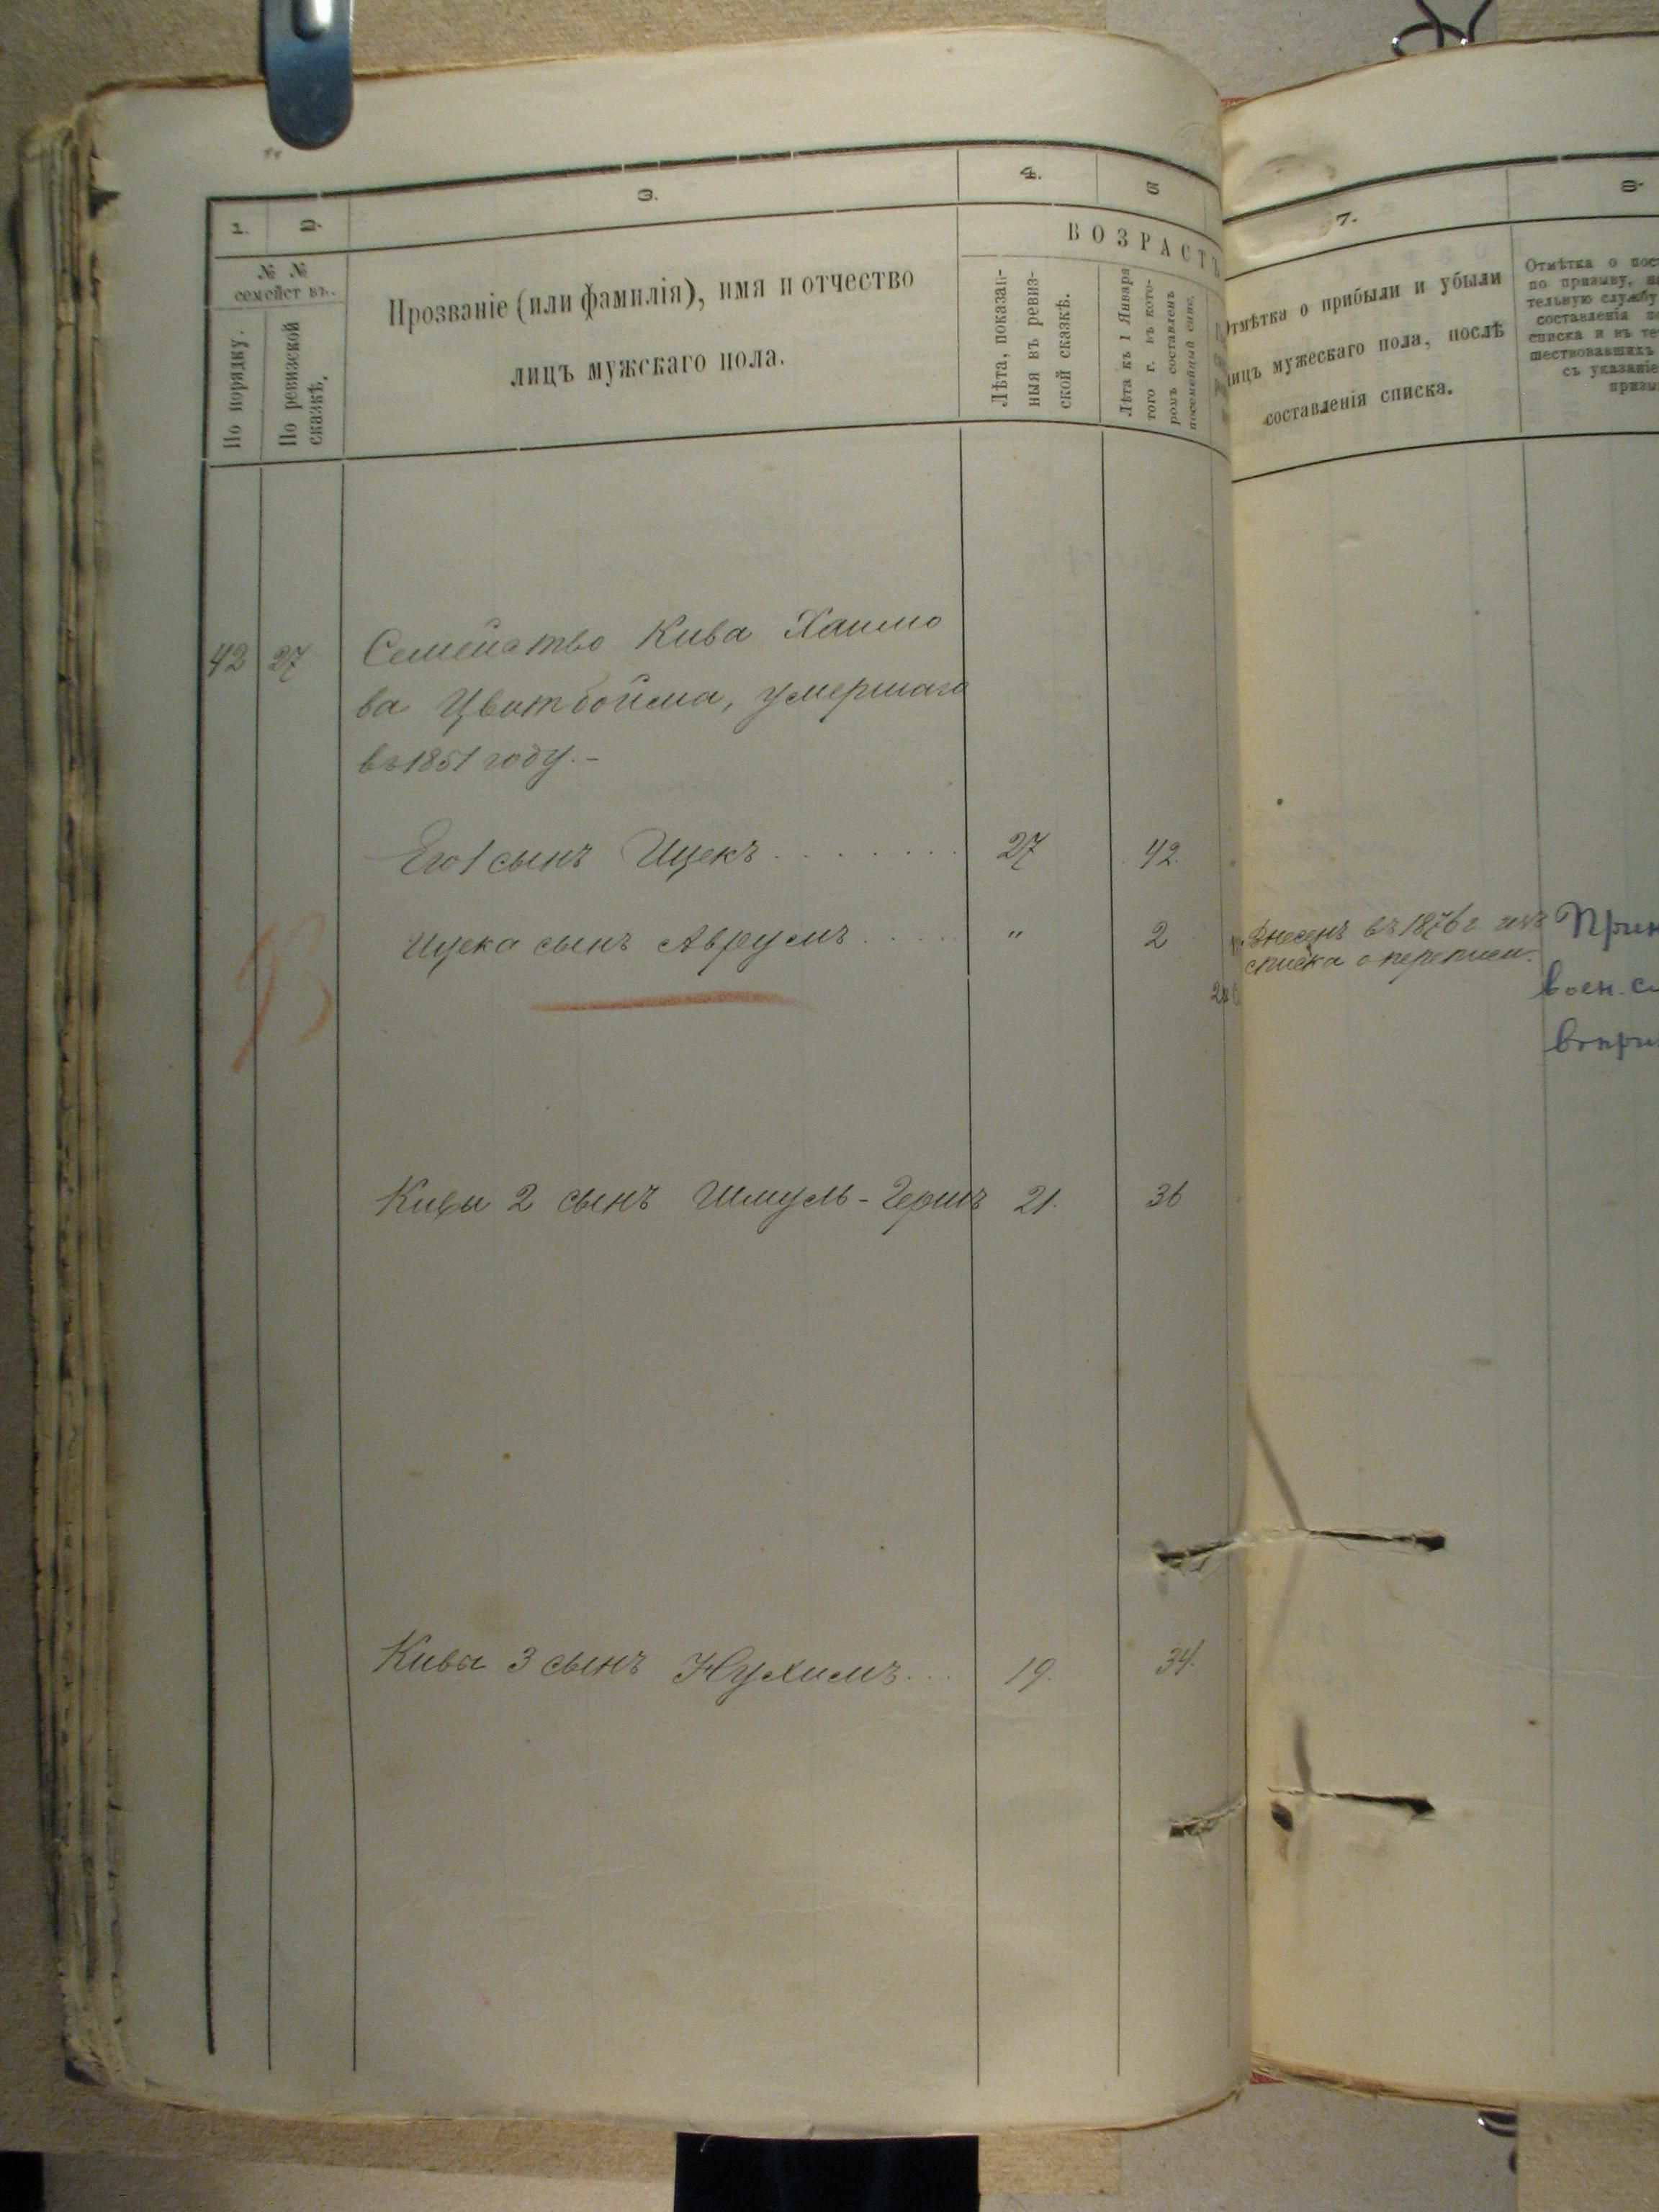 1.
2.
3.
4.
5
№ №
семействъ.
По порядку.
По ревизской
сказкѣ.
Прозваніе (или фамилія), имя и отчество
лицъ мужскаго пола.
ВОЗРАСТЪ
Лѣта, показан-
ныя въ ревиз-
ской сказкѣ.
Лѣта къ 1 Января
того г. въ кото-
ромъ составленъ
посемейный спис.
42 27 Семейство Кива Хаимо
ва Цвитбойма, умершаго
въ 1851 году. -
Его 1 сынъ Ицекъ 27 42.
Ицека сынъ Аврумъ " 2
Кивы 2 сынъ Шмуль-Гершъ 21. 36
Кива 3 сынъ Нухимъ 19. 34.
7.
8.
Отмѣтка о прибыли и убыли
лицъ мужескаго пола, послѣ
составленія списка.
Отмѣтка о пос
по призыву, на
тельную службу
составленія по
списка и въ те
шествовавшихъ
съ указаніе
призы
Внесенъ въ 1876 г. изъ
списка о переписи.
Прин
воен. с
въ при